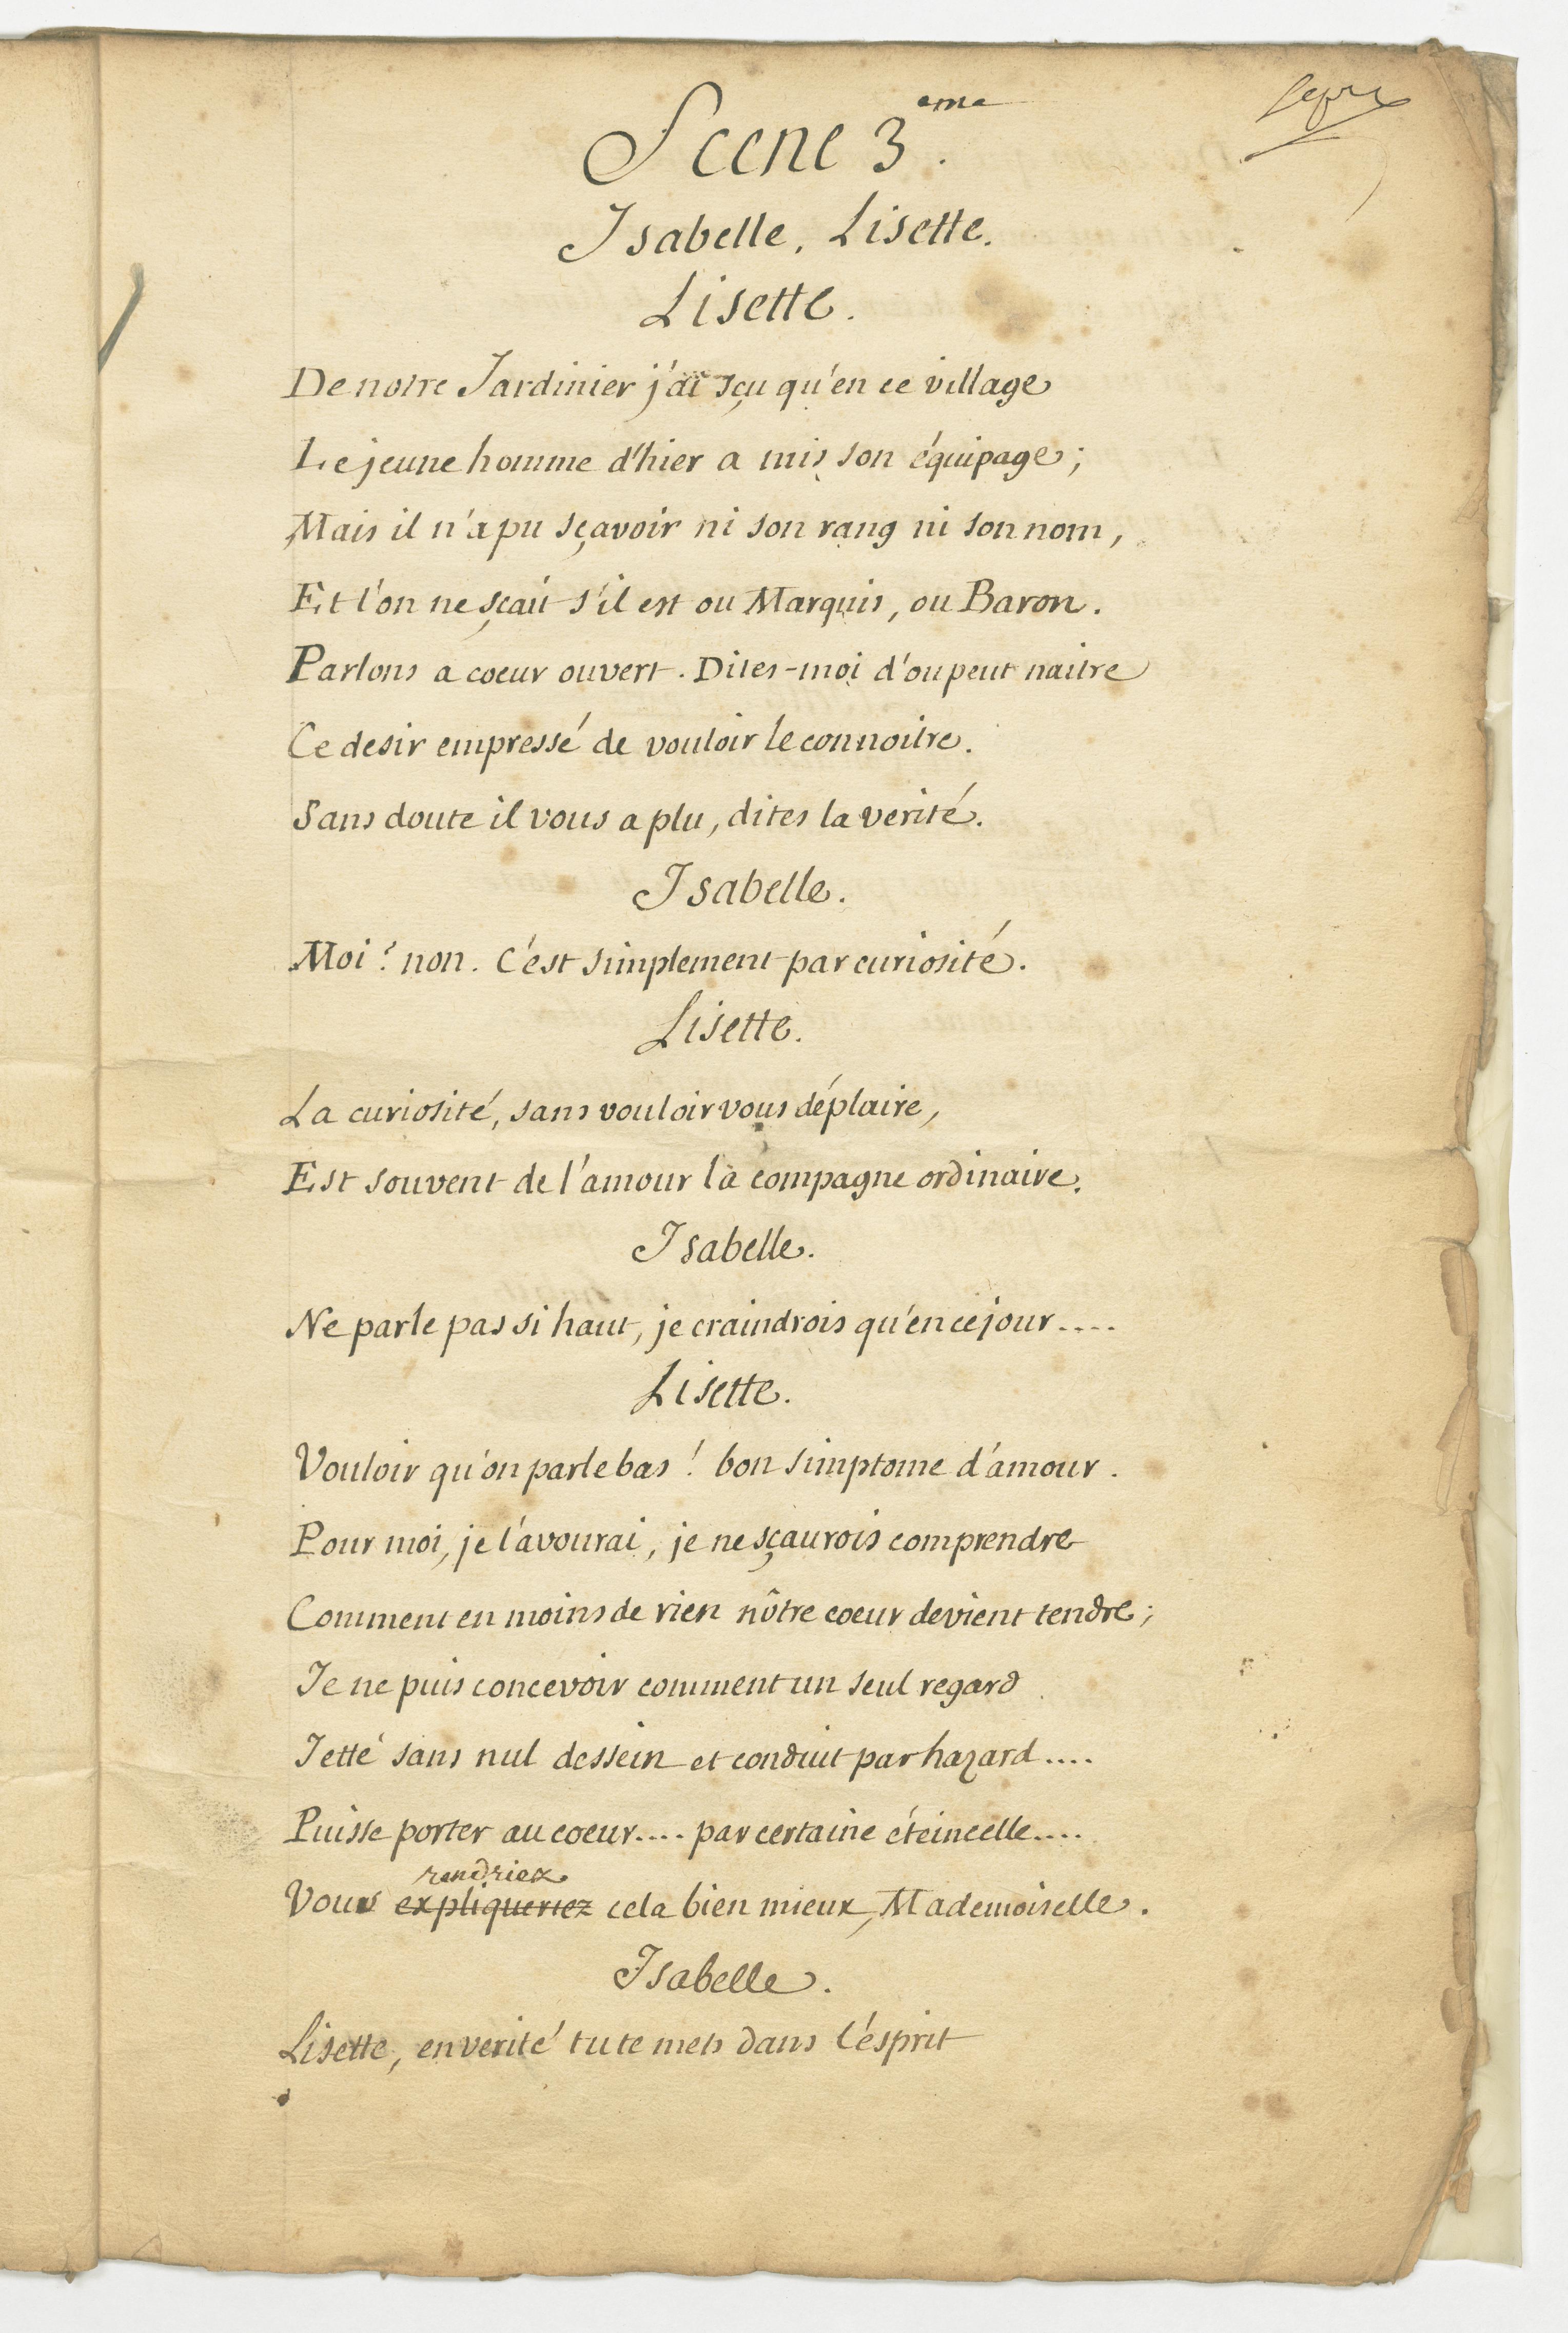 Scene 3.eme
Isabelle, Lisette.
Lisette.
De notre Jardinier j'ai sçu qu'en ce village
Le jeune homme d'hier a mis son équipage;
Mais il n'a pu sçavoir ni son rang ni son nom,
Et l'on ne sçait s'il est ou Marquis, ou Baron.
Parlons a coeur ouvert. Dites-moi d'ou peut naitre
Ce desir empressé de vouloir le connoitre.
Sans doute il vous a plu, dites la verité.
Isabelle.
Moi? non. C'est simplement par curiosité.
Lisette.
La curiosité, sans vouloir vous déplaire,
Est souvent de l'amour la compagne ordinaire.
Isabelle.
Ne parle pas si haut, je craindrois qu'en ce jour....
Lisette.
Vouloir qu'on parle bas! bon simptome d'amour.
Pour moi, je l'avourai, je ne sçaurois comprendre
Comment en moins de rien nôtre coeur devient tendre;
Je ne puis concevoir comment un seul regard
Jetté sans nul dessein et conduit par hazard....
Puisse porter au coeur.... par certaine éteincelle....
rendriez
Vous expliqueriez cela bien mieux, Mademoiselle.
Isabelle.
Lisette, en verité tu te mets dans l'ésprit